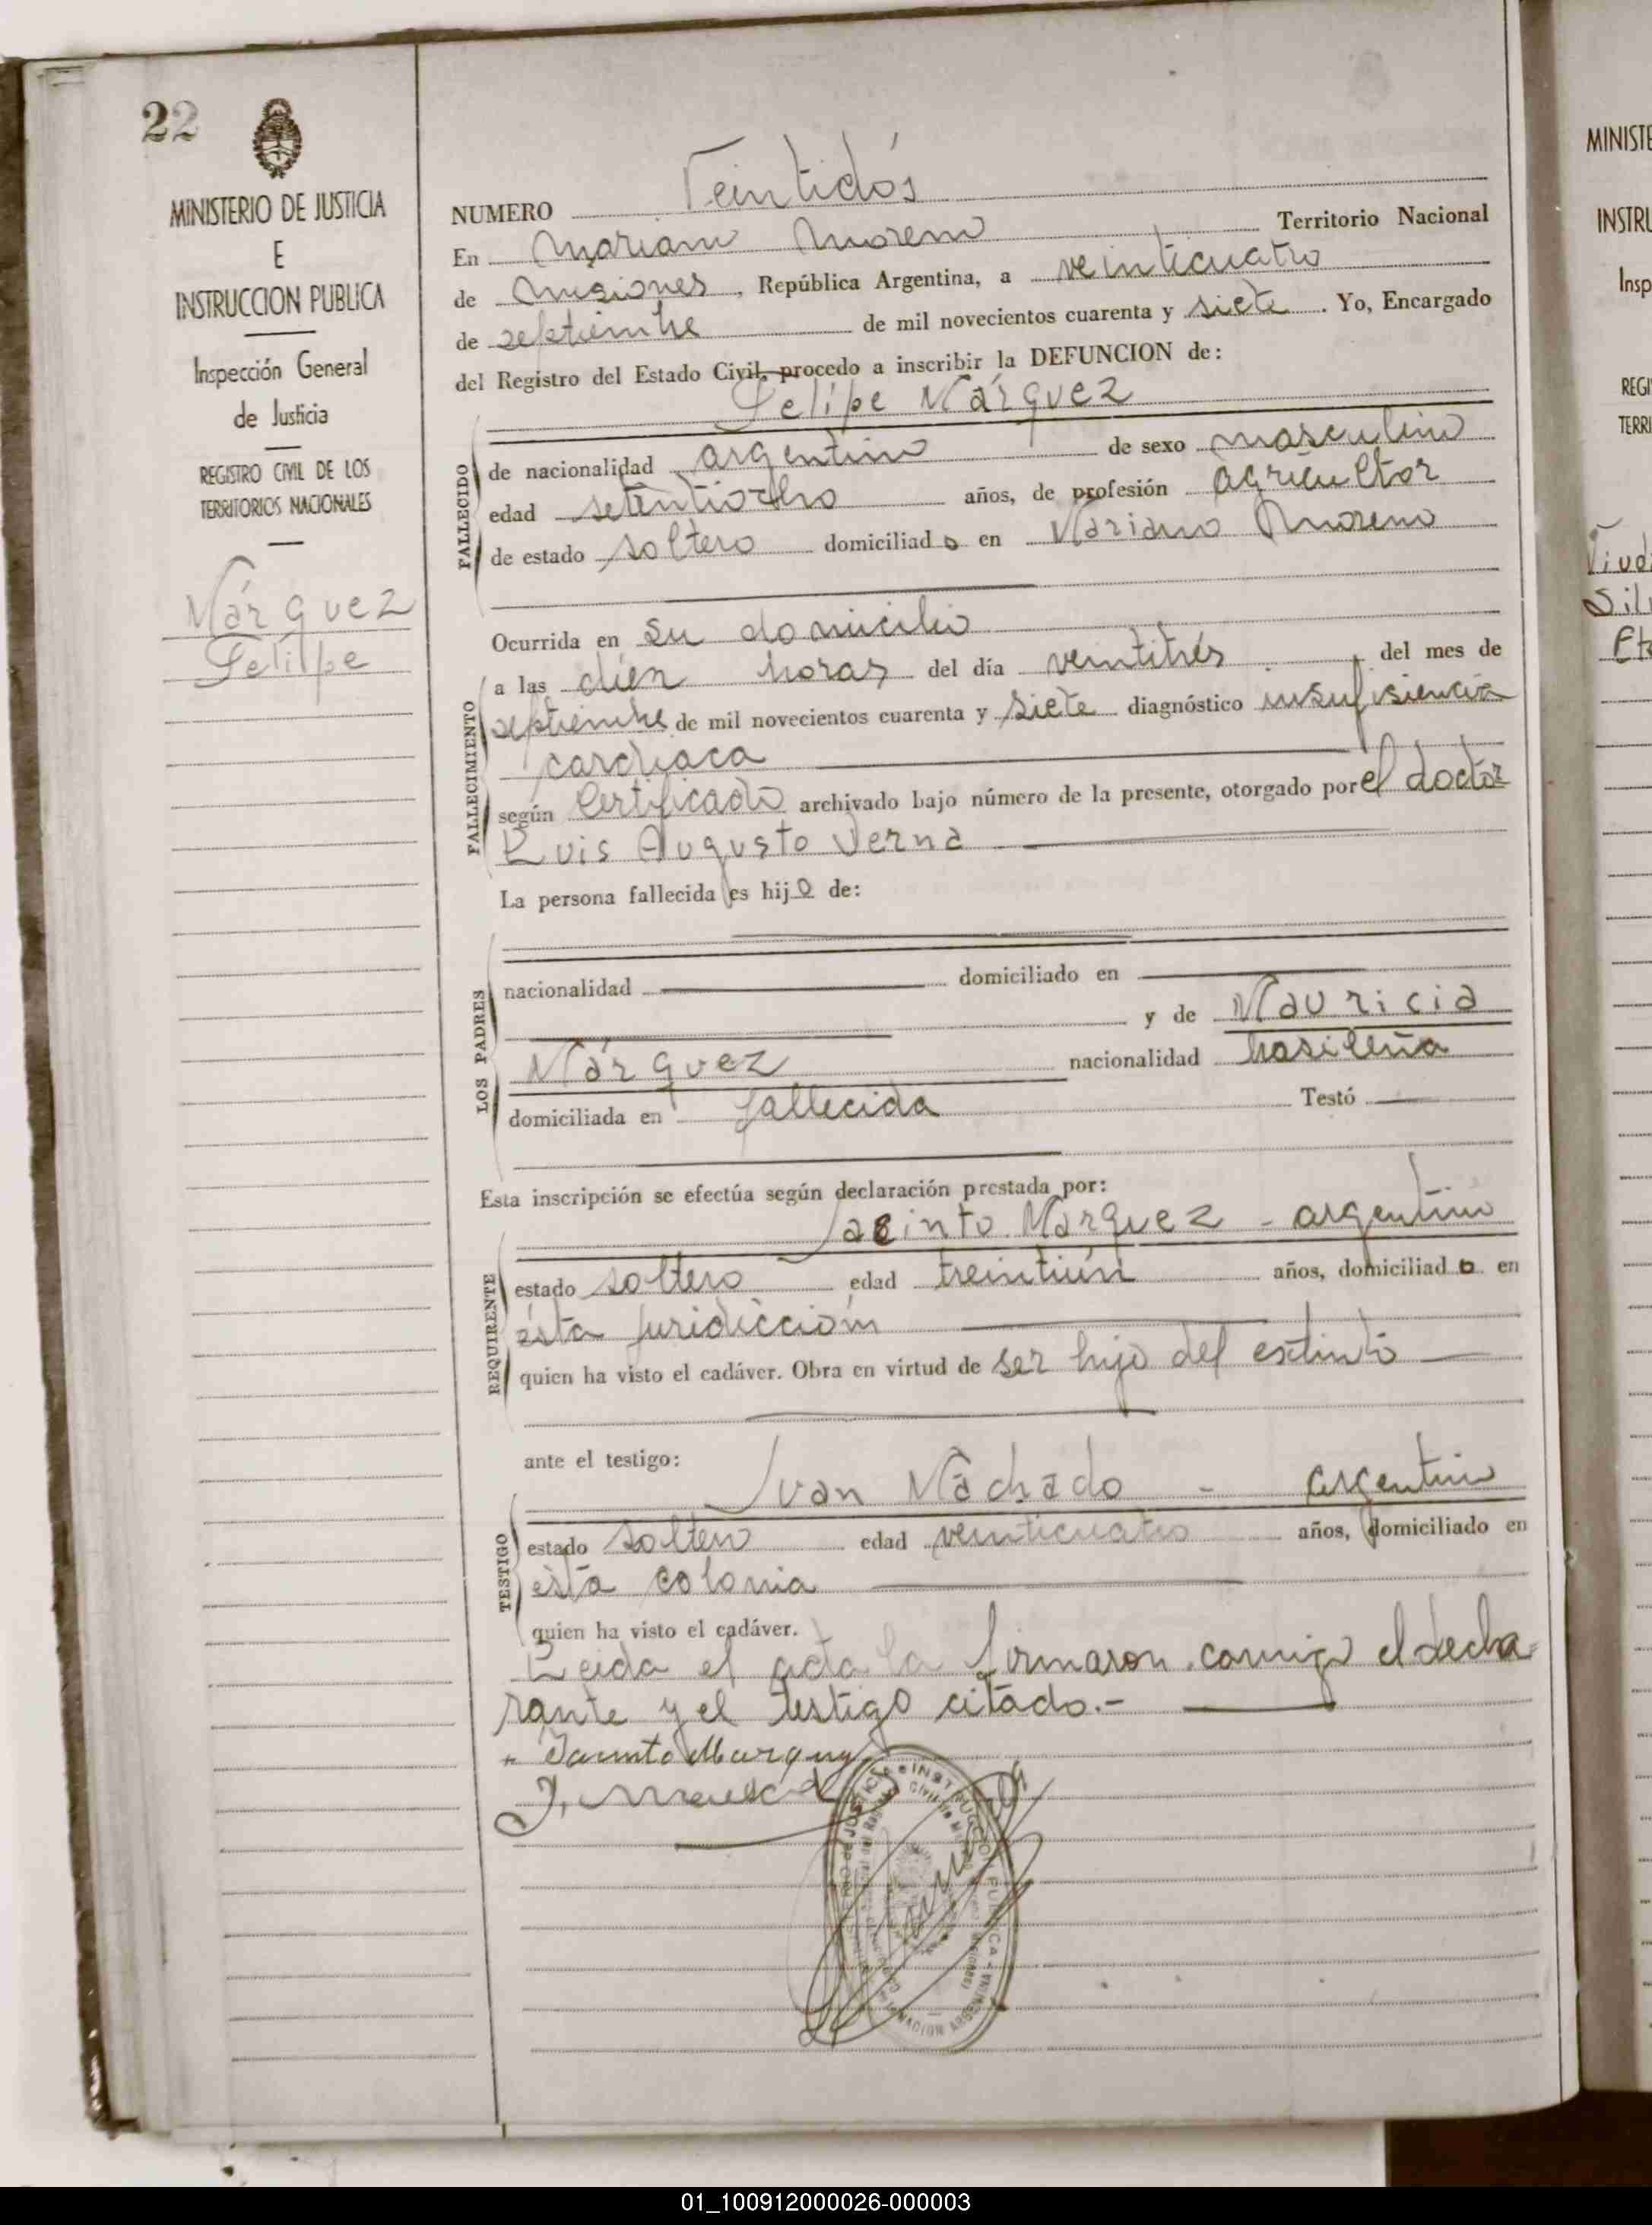 22
MINISTERIO DE JUSTICIA
E
INSTRUCCION PUBLICA
Inspección General
de Justicia
REGISTRO CIVIL DE LOS
TERRITORIOS NACIONALES
Márquez
Felilpe
NUMERO Veintidós
En Mariano Moreno Territorio Nacional
de Misiones, República Argentina, a veinticuatro
de septiembre de mil novecientos cuarenta y siete. Yo, Encargado
del Registro del Estado Civil, procedo a inscribir la DEFUNCION de:
Felipe Márquez
FALLECIDO
de nacionalidad argentino de sexo masculino
edad setentiocho años, de profesión agricultor
de estado soltero domiciliado en Mariano Moreno
Ocurrida en su domicilio
FALLECIMIENTO
a las diez horas del día veintitrés del mes de
septiembre de mil novecientos cuarenta y siete diagnóstico insufisiencia
cardiaca
según Certificado archivado bajo número de la presente, otorgado por el doctor
Luis Augusto Verna
La persona fallecida es hijo de:
LOS PADRES
nacionalidad domiciliado en
y de Mauricia
Márquez nacionalidad brasileña
domiciliada en fallecida Testó
Esta inscripción se efectúa según declaración prestada por:
REQUIRENTE
Jacinto Marquez - argentino
estado soltero edad treintiún años, domiciliado en
ésta juridicción
quien ha visto el cadáver. Obra en virtud de ser hijo del extinto
ante el testigo:
TESTIGO
Juan Machado - argentino
estado soltero edad veinticuatro años, domiciliado en
esta colonia
quien ha visto el cadáver.
Leida el acta la firmaron conmigo el decla
rante y el testigo citado.-
Jacinto Marquez
MINISTE
INSTRU
Insp
REGI
TERRI
01_100912000026-000003